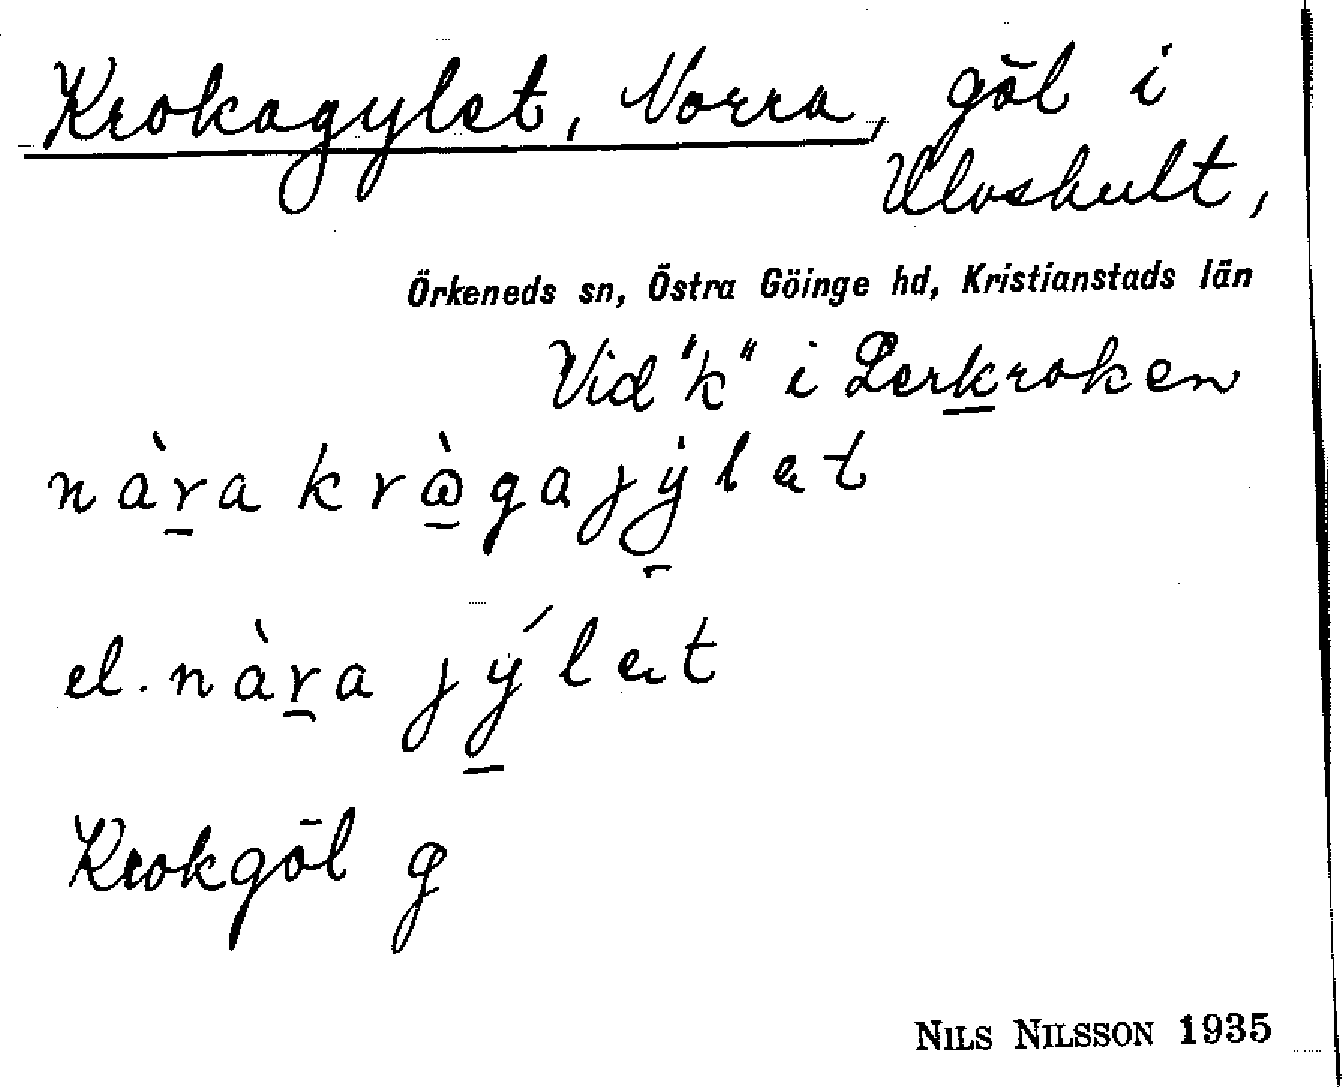 Krokagylet, Norra, göl i
Ulvshult,
Örkeneds sn, Östra Göinge hd, Kristianstads län
Vid "k" i Lerkroken
nàr̠a krὼ̠gajỳ̠lət
el. nàr̠a jý̠lət
Krokgöl g
NILS NILSSON 1935